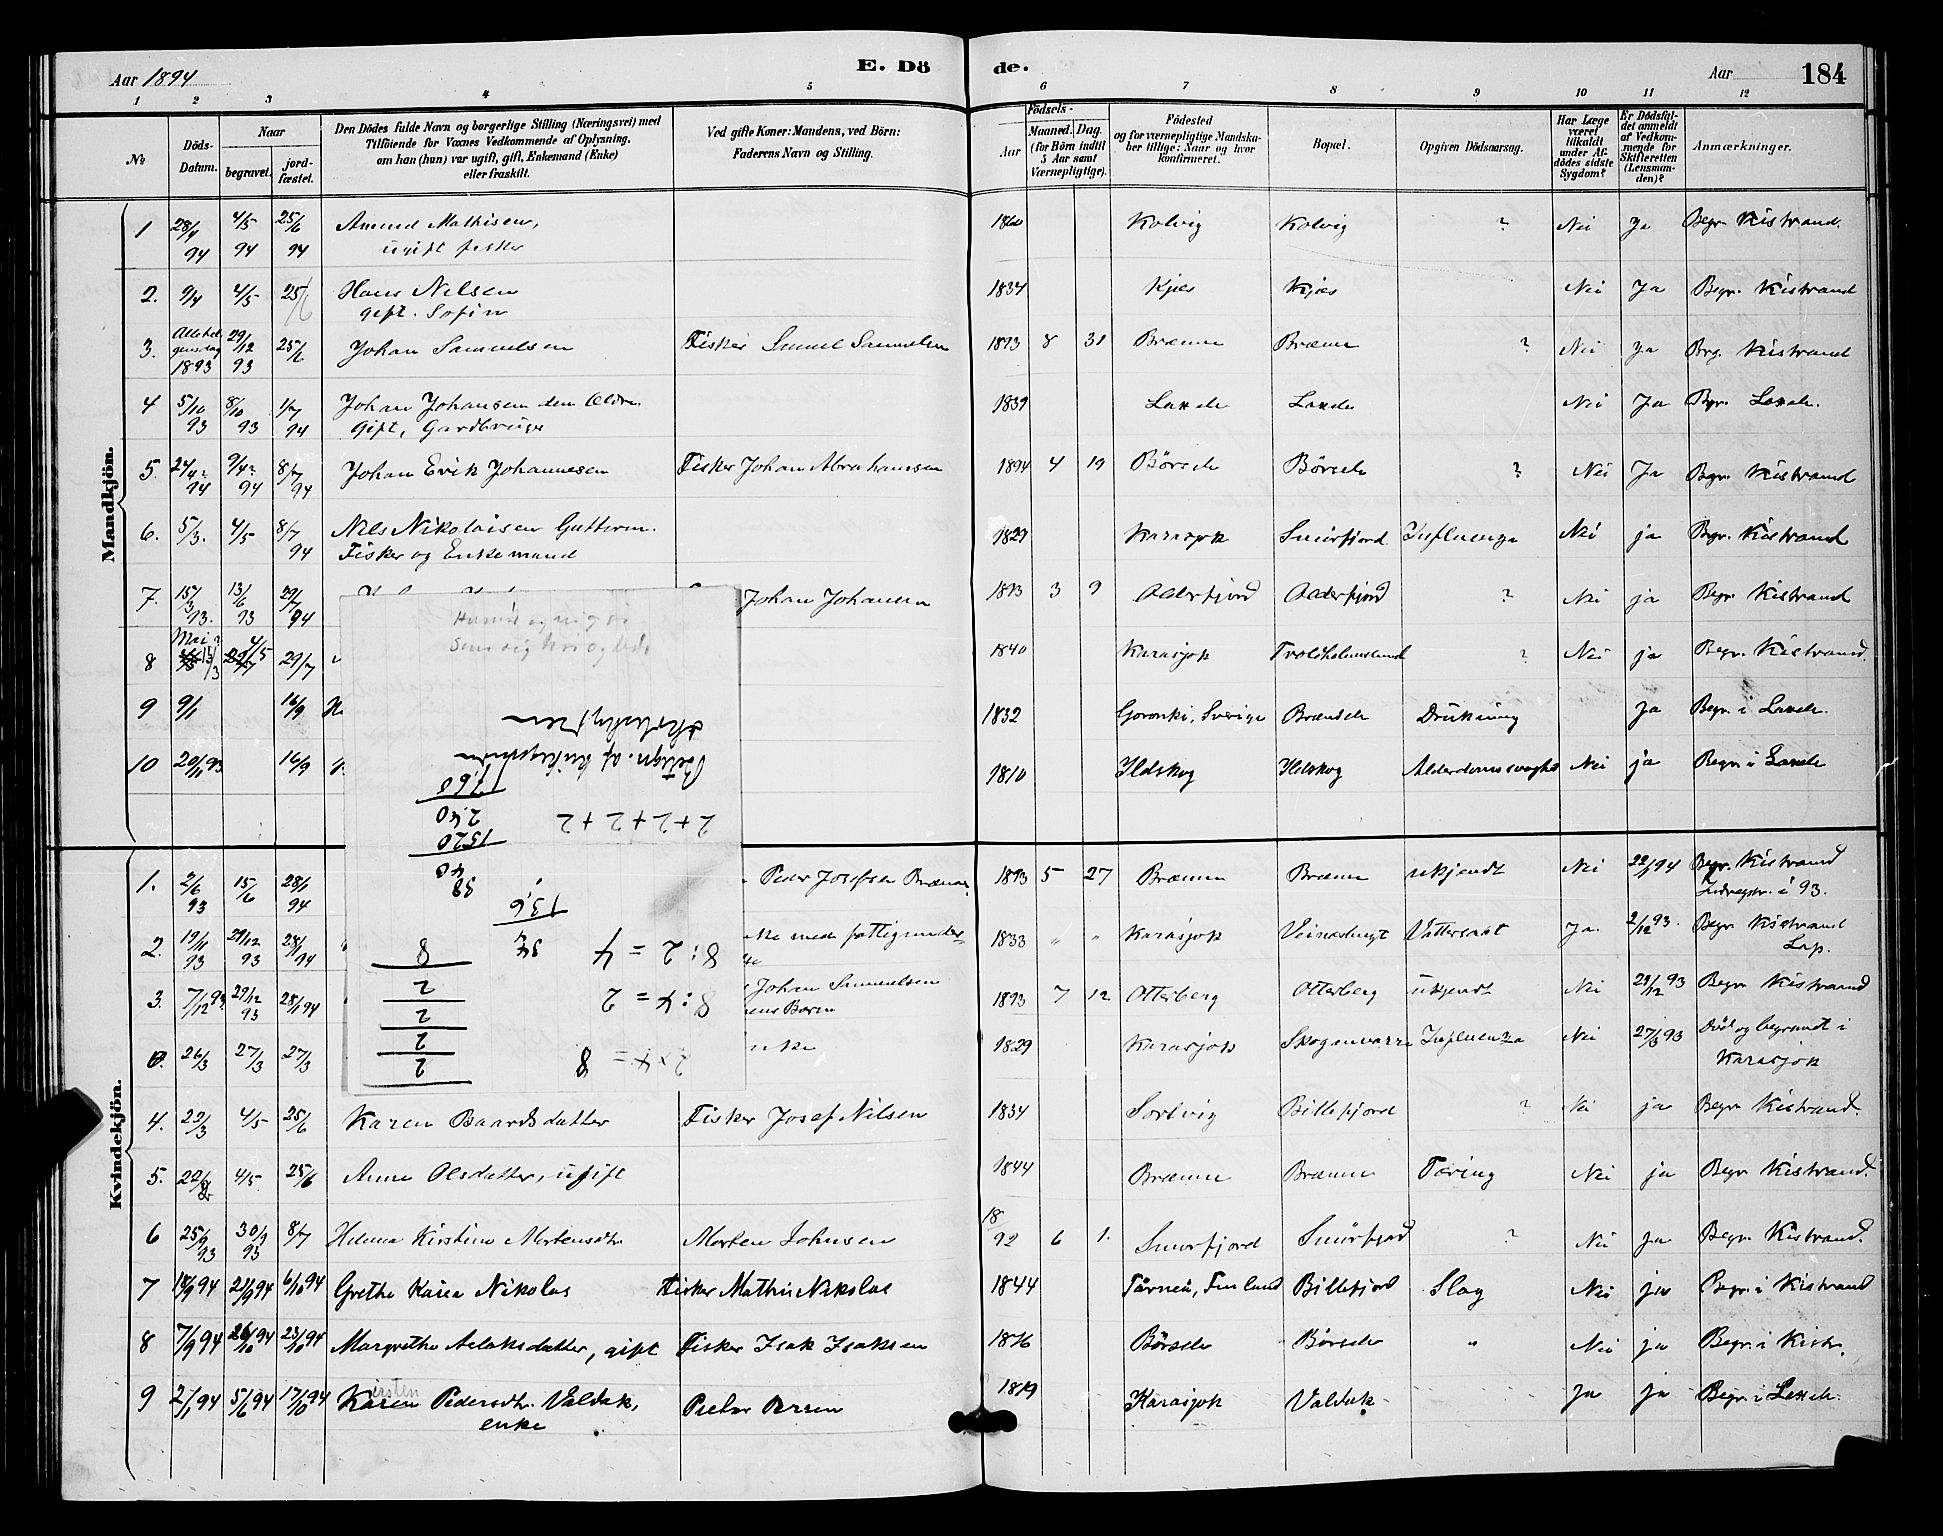 Aar 1894
E. Döde.
Aar 184
1 2 3 4 5 6 7 8 9 10 11 12
No
Döds-Datum.
Naar
begravet.
jord-fæstet.
Den Dödes fulde Navn og borgerlige Stilling (Næringsvei) med
Tilföiende for Voxnes Vedkommende af Oplysning,
om han (hun) var ugift, gift, Enkemand (Enke)
eller fraskilt.
Ved gifte Koner: Mandens, ved Börn:
Faderens Navn og Stilling.
Födsels-
Aar
Maaned. Dag.
(for Börn indtil
5 Aar samt
Værnepligtige).
Födested
og for værnepligtige Mandska-
ber tillige: Naar og hvor
konfirmeret.
Bopæl.
Opgiven Dödsaarsag.
Har Læge
været
tilkaldt
under Af-
dödes sidste
Sygdom?
Er Dödsfal-
det anmeldt
af Vedkom-
mende for
Skifteretten
(Lensman-
den)?
Anmærkninger.
Mandkjön.
1 28/4 94 4/5 94 25/6 94 Amund Mathisen, ugift fisker 1860 Kolvig Kolvig ? Nei Ja Begr. Kistrand.
2. 9/4 4/5 25/6 Hans Nilsen gift. 1834 Kjæs Kjæs Nei Ja Begr. Kistrand
3. 1893 29/12 93 25/6 Johan Samuelsen Fisker Samuel Samuelsen 1893 8 31 Brænna Brænna ? Nei Ja Brg. Kistrand
4 5/10 93 8/10 93 1/7 94 Johan Johansen den Ældre. Gift, Gardbruger 1839 Laxelv Laxelv Nei Ja Bgr. Laxelv.
5. 24/4? 94 9/4? 94 8/7 94 Johan Erik Johannesen Fisker Johan Abrahamsen 1894 4 19 Börselv Börselv ? Nei Ja Begr. Kistrand
6. 5/3. 4/5 8/7 94 Nels Nikolaisen Guttorm. Fisker og Enkemand 1829 Karasjok Smörfjord Influenza Nei ja Begr. Kistrand
7. 15/3 93. 13/6 93 29/7 94 Johan Johansen 1893 3 9 Olderfjord Olderfjord ? Nei ja Begr. Kistrand
8 Mai? 4/5 29/7 1840 Karasjok Troldholmsund ? Nei ja Begr. Kistrand.
9 9/1 16/9 1832 Sverige Brændelv Drukning Ja Begr. i Laxelv.
10 20/11 93 16/9 1810 Ildskog Ildskog Alderdomssvaghed Nei ja Begr. i Laxelv
skolestyrren
2+2+2+2
1760
2,40
1520
40
58
13,6
34
8:2 = 4
8:4 = 2
2×4 = 8
8
2
2
2
2
Kvindekjön.
1. 2/6 93 15/6 28/1 94 Peder Josefsen Brænna. 1893 5 27 Brænna Brænna ukjendt Nei 22/1 94 Begr. Kistrand Indregstr. i 93.
2. 19/11 93 29/12 93 28/1 94 med fattigunder- 1833 " " Karasjok Veinæsbugt Vattersaat Ja. 2/12 93. Begr. Kistrand Lap.
3. 7/12 93. 29/12 93 28/1 94 Johan Samuelsen 1893 7 12 Otterberg Otterberg ukjendt Nei 29/12 93 Begr. Kistrand
0. 26/3 27/3 27/3 1829 Karasjok Skoganvarre Influenza Nei 27/3 93 Död og begravet i Karasjok
4. 23/3 4/5 25/6 Karen Baardsdatter Fisker Josef Nilsen 1834 Sortvig Billefjord ? Nei ja Begr. Kistrand.
5. 4/5 25/6 Anna Olsdatter, ugift 1844 Brænna Brænna Tæring Nei ja Begr. Kistrand.
6 25/9 93 30/9 93 8/7 Helena Kirstine Mortensdtr. Morten Johnsen 18/92 6 1. Smörfjord Smörfjord ? Nei ja Begr. Kistrand.
7 18/9 94 21/9 94 6/10 94 Grethe Kaisa Nikolas Fisker Mathis Nikolas 1844 Tårneå, Finland Billefjord Slag Nei ja Begr. i Kistrand
8 7/9 94 26/10 94 23/10 94 Margrethe Aslaksdatter, gift Fisker Isak Isaksen 1876 Börselv Börselv " Nei ja Begr. i Kistr.
9 2/1 94 5/6 94 17/10 94 Karen Kirsten Pedersdtr. Valdak, enke 1819 Karasjok Valdak Ja ja Begr. i Laxelv.